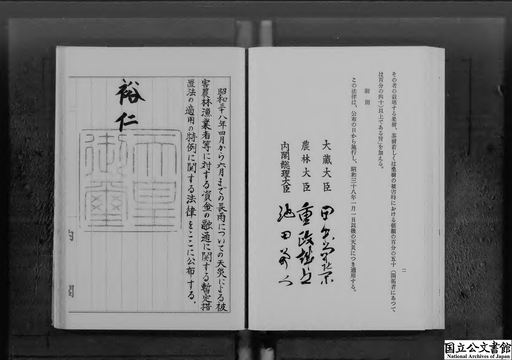 その者の栽培する桑樹、茶樹若しくは果樹の被害時における価額の百分の五十(開拓者にあつて
は百分の四十)以上である旨」を加える。
附則
この法律は、公布の日から施行し、昭和三十八年一月一日以後の天災につき適用する。
大蔵大臣 田中角栄
農林大臣 重政誠之
内閣総理大臣 池田勇人
二
昭和三十八年四月から六月までの長雨についての天災による被
害農林漁業者等に対する資金の融通に関する暫定措
置法の適用の特例に関する法律をここに公布する。
裕仁
天皇
御璽
国立公文書館
National Archives of Japan